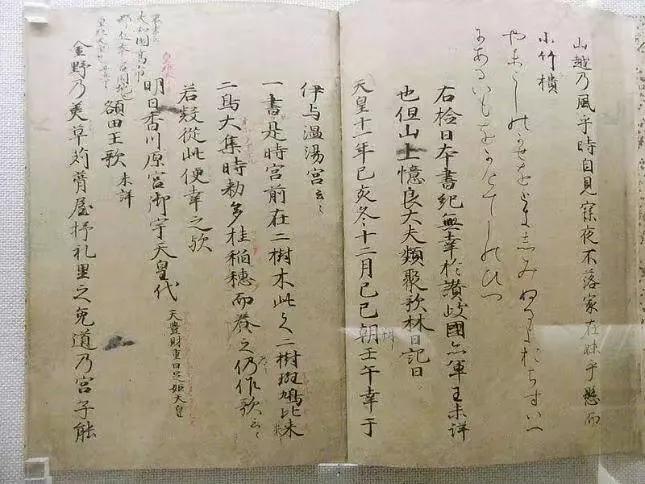 山越乃風乎時自見寐夜不落家在妹乎懸而
小竹樻
やまこしのかせをときしみぬるよおちすいへ
にあるいもをかけてしのひつ
右檢日本書紀無幸於讃岐國亦軍王未詳
也但山上憶良大夫類聚歌林曰記曰
天皇十一年己亥冬十二月己巳朝壬午幸于
伊与温湯宮云々
一書是時宮前在二樹木此之二樹斑鳩比米
二鳥大集時勅多挂稲穂而養之仍作歌云々
若疑從此便幸之歟
明日香川原宮御宇天皇代 天豊財重日足姫天皇
額田王歌 未詳
金野乃美草苅葺屋杼礼里之兎道乃宮子能